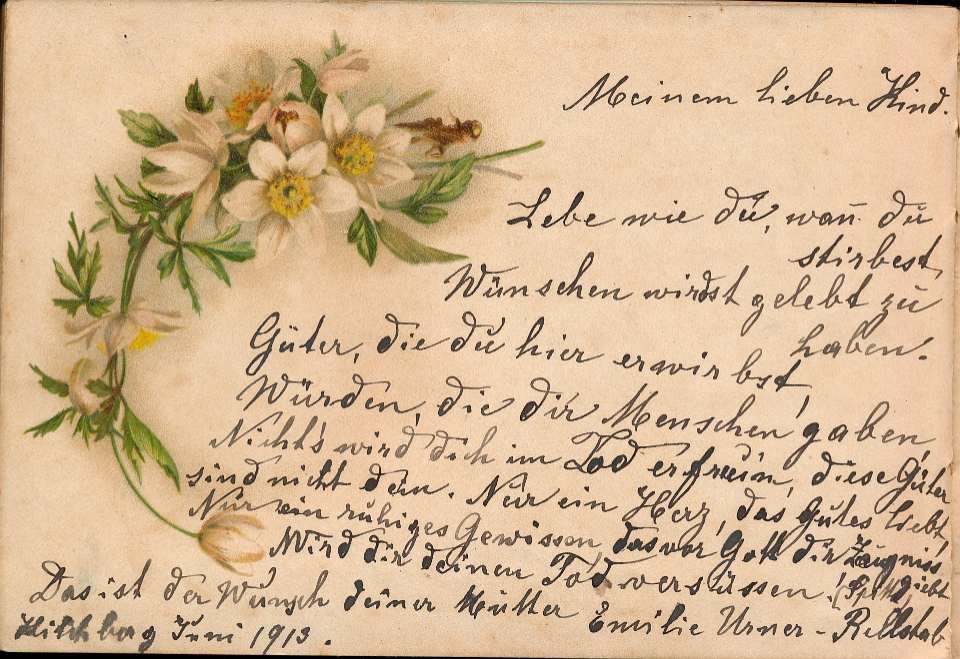 Meinem lieben Kind.
Lebe wie dū, wan̄ dū
stirbest,
Wünschen wirdst gelebt zū
haben.
Güter, die dū hier erwirbst,
Würden, die dir Menschen gaben
Nichts wird dich im Tod erfreūn, diese Güter
sind nicht dein. Nūr ein Herz, das Gūtes liebt,
Nūr ein rūhiges Gewissen das vor Gott dir Zeūgnis
giebt
Wird dir deinen Tod versüssen!
Das ist der Wūnsch deiner Mūtter Emilie Urner-Rellstab
Kilchberg Jūni 1913.